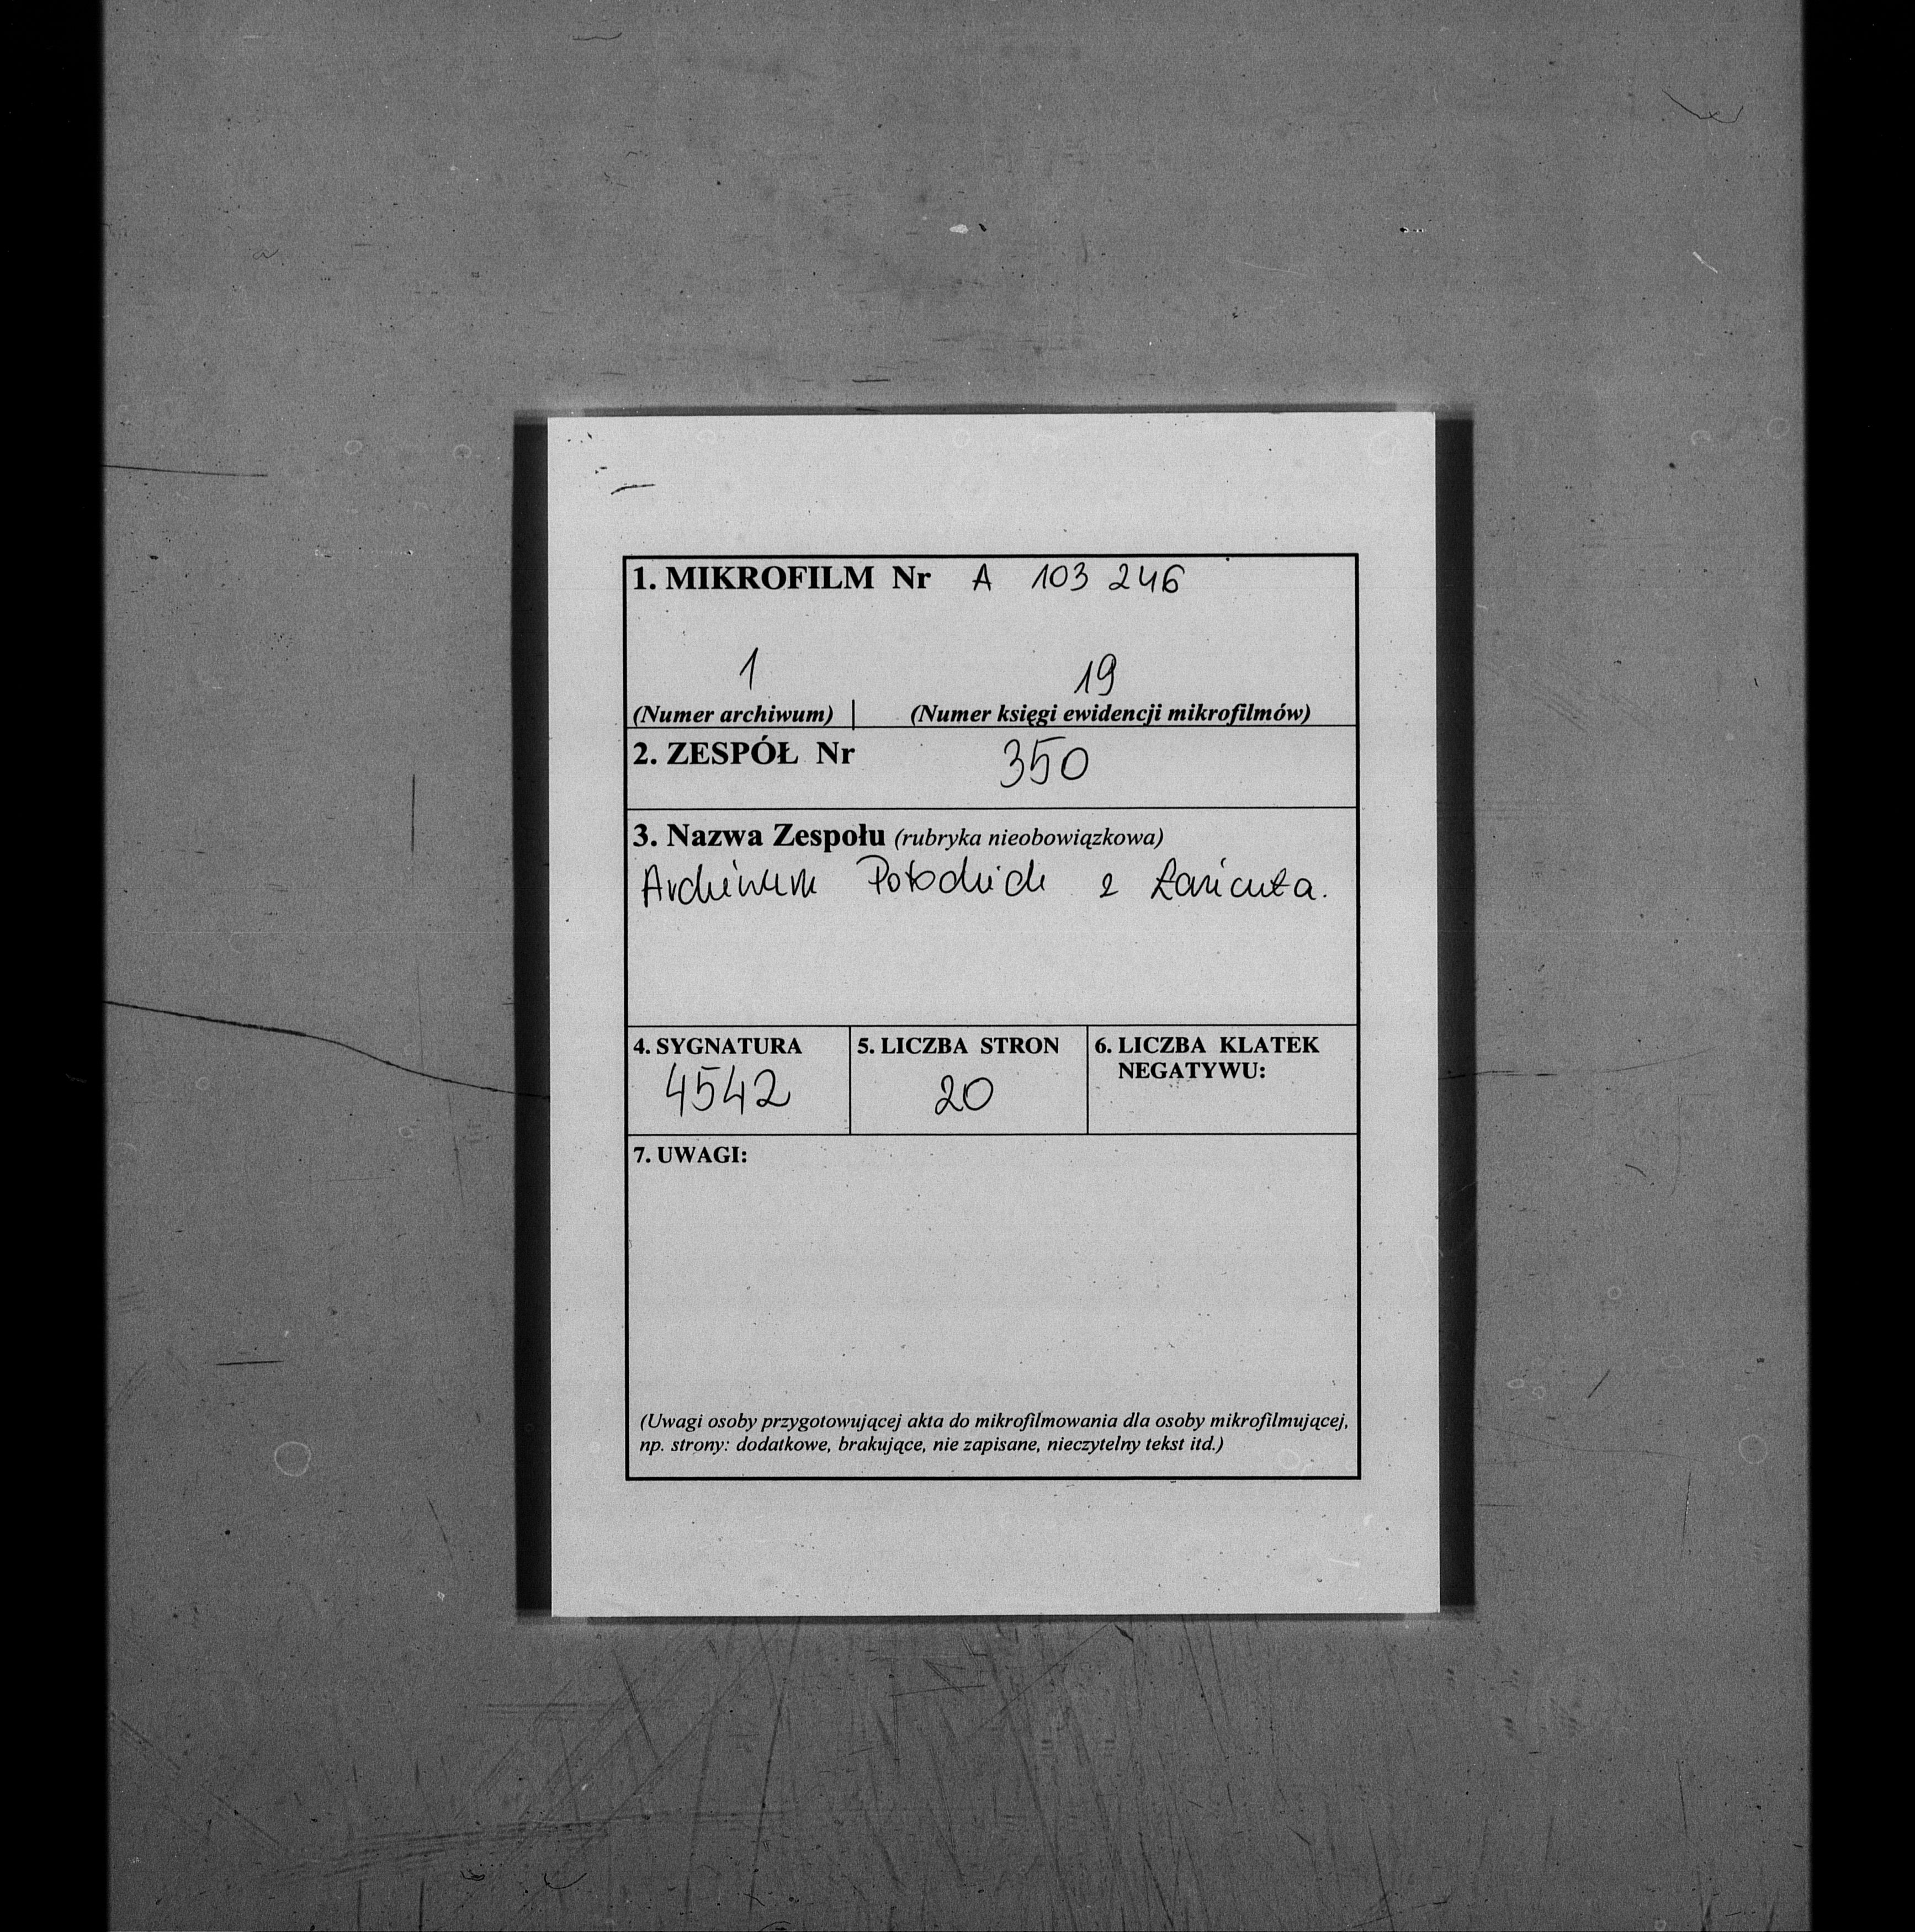 1. MIKROFILM Nr A 103 246
1 19
(Numer archiwum) | (Numer księgi ewidencji mikrofilmów)
2. ZESPÓŁ Nr 350
3. Nazwa Zespołu (rubryka nieobowiązkowa)
Archiwum Potockich z Łańcuta.
4. SYGNATURA 5. LICZBA STRON 6. LICZBA KLATEK
NEGATYWU:
4542 20
7. UWAGI:
(Uwagi osoby przygotowującej akta do mikrofilmowania dla osoby mikrofilmującej,
np. strony: dodatkowe, brakujące, nie zapisane, nieczytelny tekst itd.)